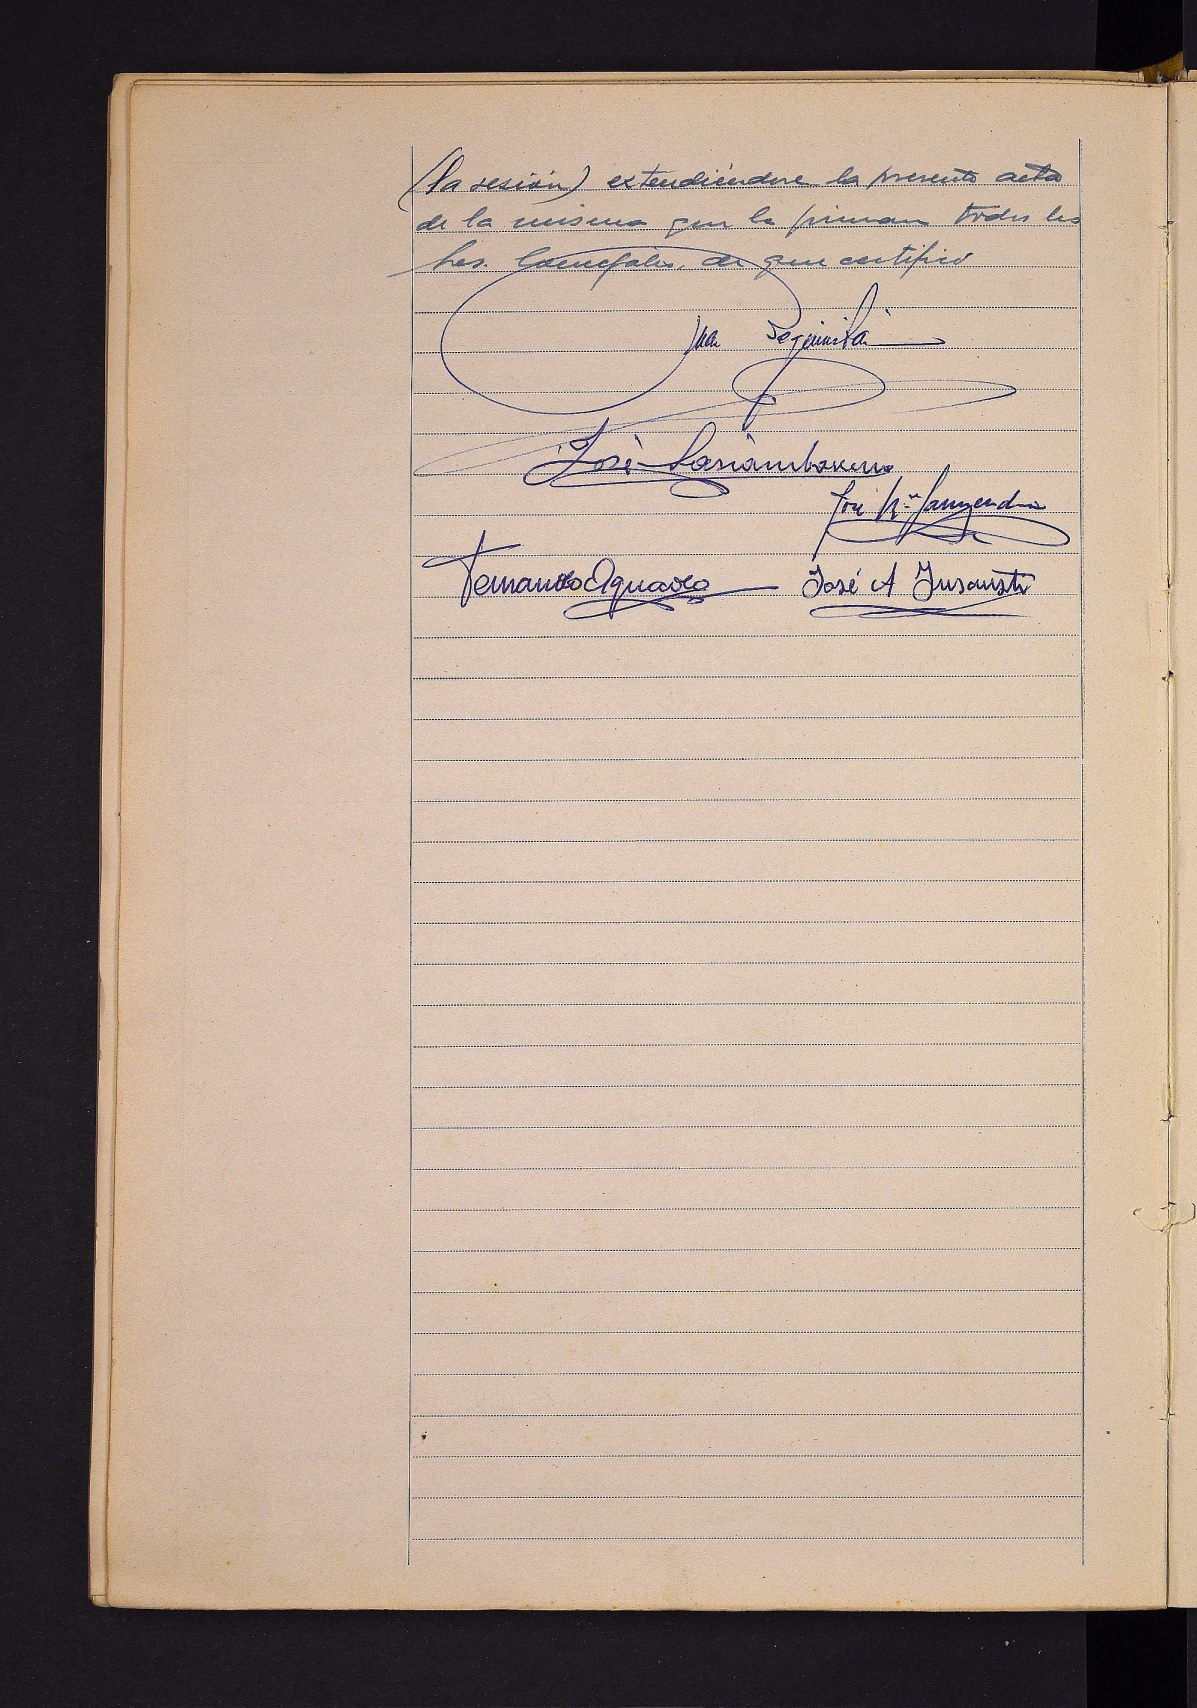 (la sesión) extendiéndose la presente acta
de la misma que la firman todos los
Sres. Concejales, de que certifico
Juan
José
José Mª
Fernando Aguado José A Insausti